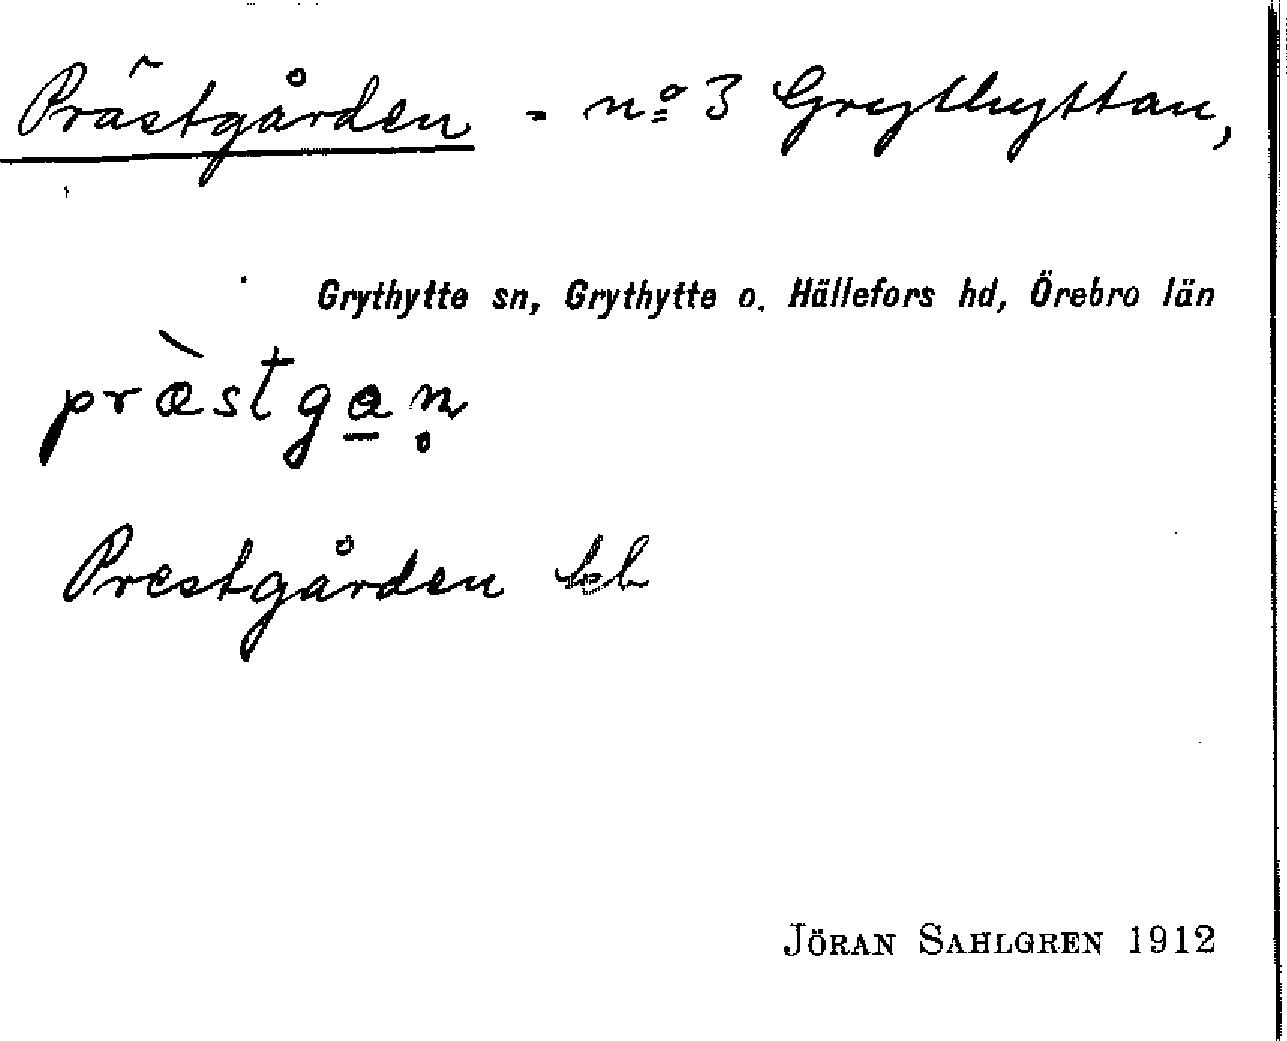 Prästgården - nº 3 Grythyttan,
Grythytte sn, Grythytte o. Hällefors hd, Örebro län
præ̀stga̲n̥
Prestgården
JÖRAN SAHLGREN 1912